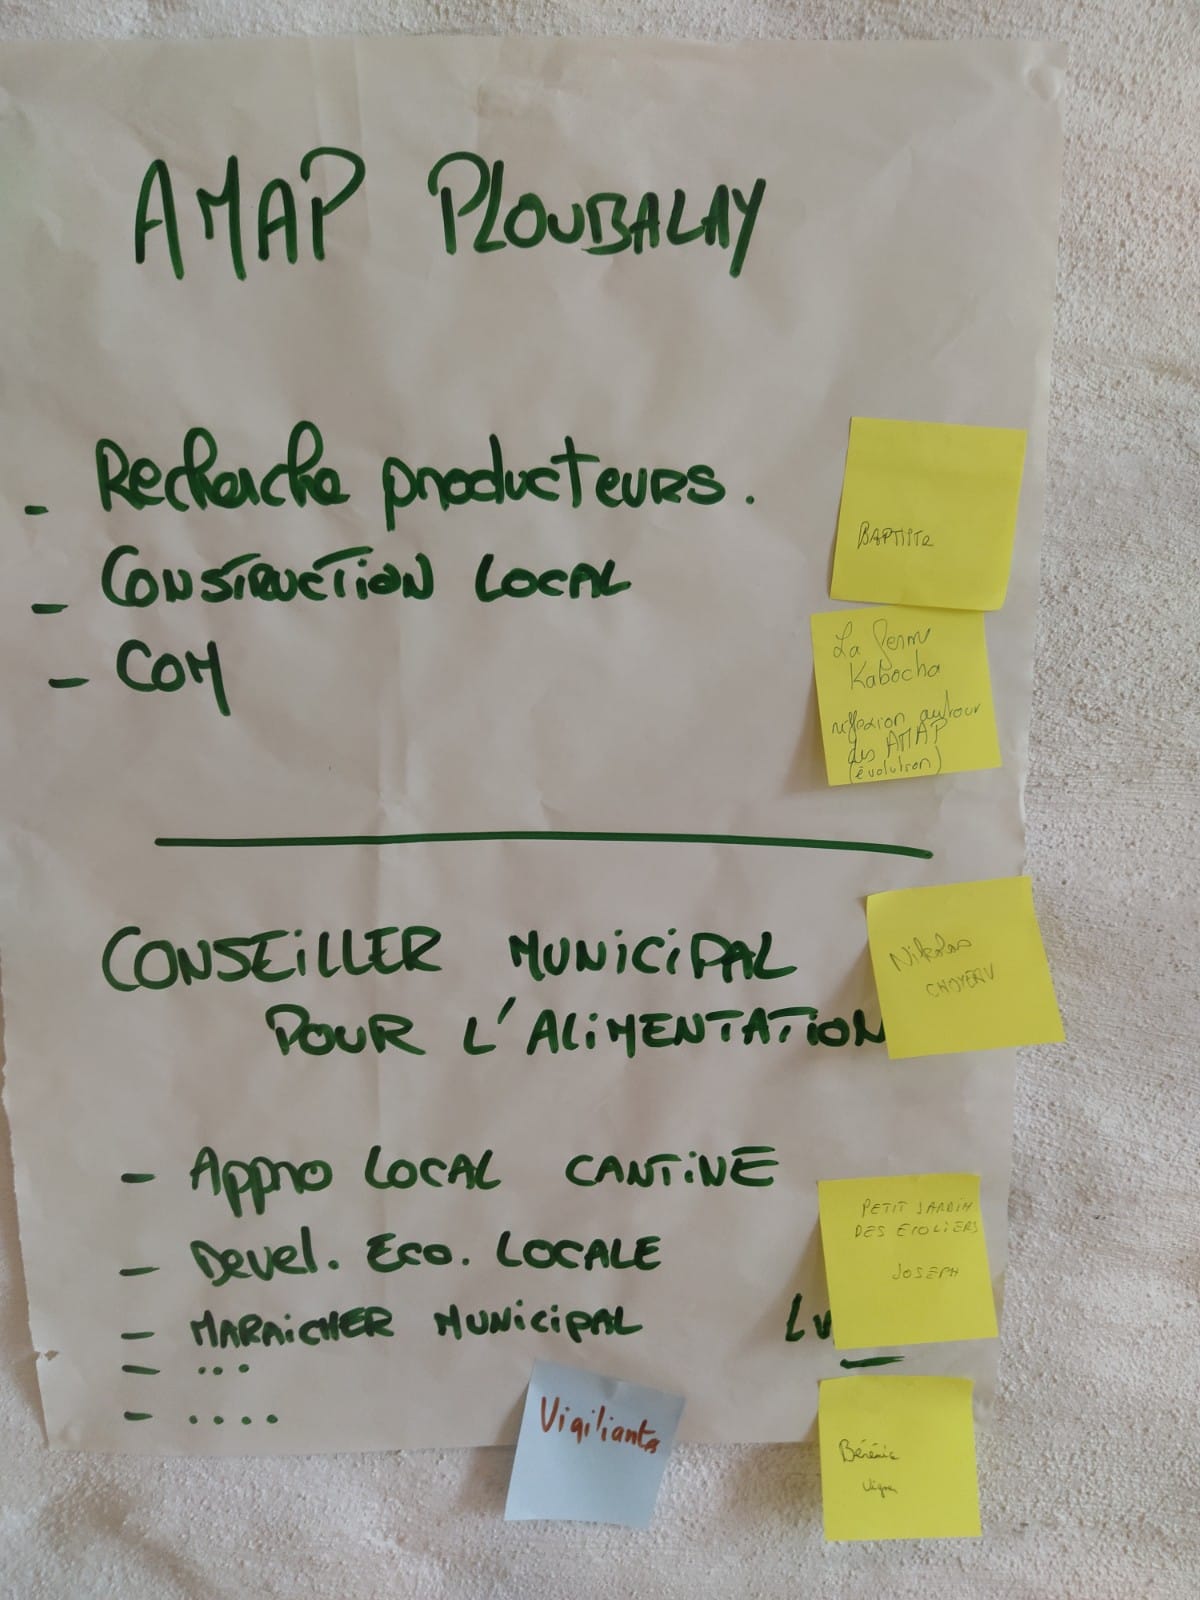 AMAP PLOUBALAY
- Recherche producteurs.
- CONSTRUCTION LOCAL
- COM
BAPTISTE
La ferme
Kabocha
réflexion autour
des AMAP
(évolution)
CONSEILLER MUNICIPAL
POUR L'ALIMENTATION
Nikolas
- Appro LOCAL CANTINE
- Devel. Eco. LOCALE
- MARAICHER MUNICIPAL
- ...
- ....
PETIT JARDIN
DES ECOLIERS
JOSEPH
Vigiliants
Bérénice